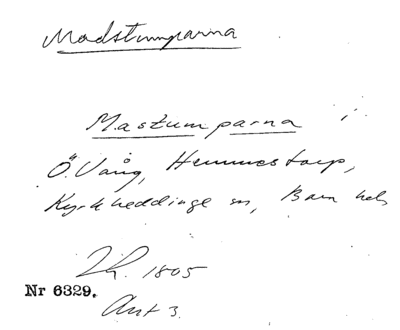 Madstumparna
Mastumparna i
Ö. Vång, Hemmestorp,
Kyrkheddinge sn, Bara hd
Lh. 1805
Nr 6329.
Akt 3.